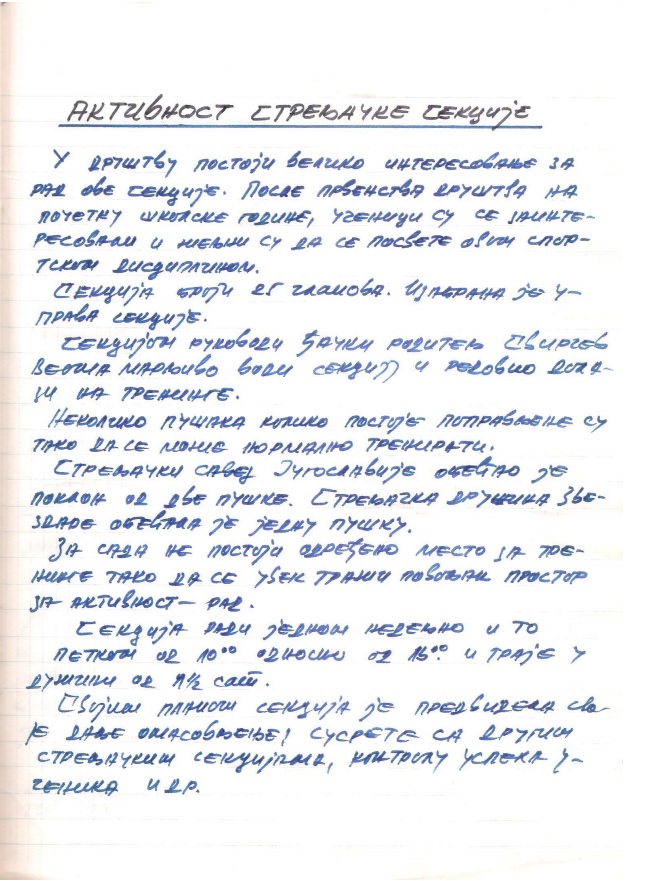 АКТИВНОСТ СТРЕЉАЧКЕ СЕКЦИЈЕ
У друштву постоји велико интересовање за
рад ове секције. После првенства друштва на
почетку школске године, ученици су се заинте-
ресовали и жељни су да се посвете овом спор-
тском дисциплином.
Секција броји 25 чланова. Изабрана је у-
права секције.
Секцијом руководи ђачки родитељ
марљиво води секцију и редовно дола-
зи на тренинге.
Неколико пушака колико постоје поправљене су
тако да се може нормално тренирати.
Стрељачки савез Југославије обећао је
поклон од две пушке. Стрељачка дружина Зве-
здаре обећала је једну пушку.
За сада не постоји одређено место за тре-
нинге тако да се увек тражи повољан простор
за активност – рад.
Секција ради једном недељно и то
петком од 10⁰⁰ односно од 15⁰⁰ и траје у
дужини од 1½ сат.
Својим планом секција је предвидела сво-
је даље омасовљење, сусрете са другим
стрељачким секцијама, контролу успеха у-
ченика и др.